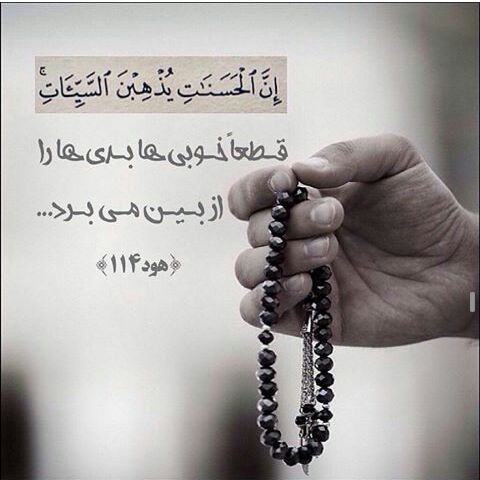 إِنَّ ٱلْحَسَنَـٰتِ يُذْهِبْنَ ٱلسَّيِّـَٔاتِ ۚ
قطعاً خوبی ها بدی ها را
از بین می برد...
﴿هود۱۱۴﴾